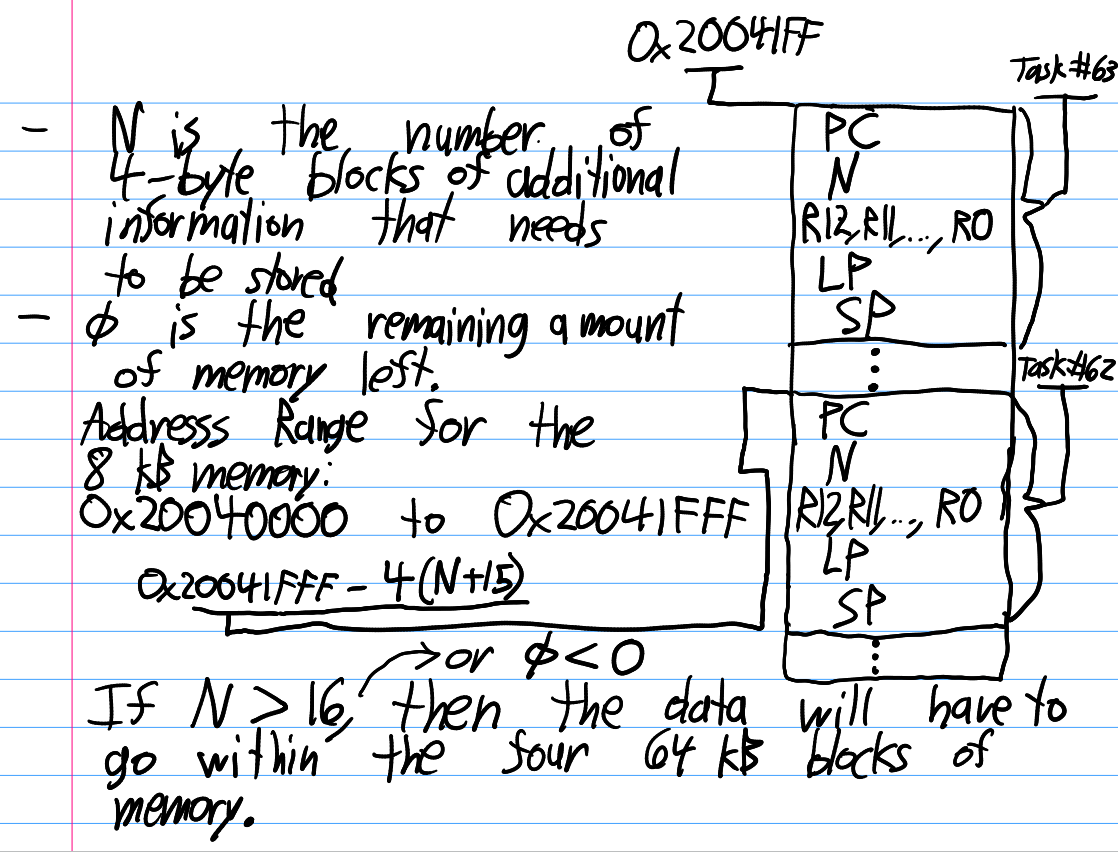 0x20041FF
Task#63
- N is the number of
4-byte blocks of additional
information that needs
to be stored
- ϕ is the remaining amount
of memory left.
Addresss Range for the
8 kB memory:
0x20040000 to 0x20041FFF
0x20041FFF - 4(N+15)
→ or ϕ < 0
If N > 16, then the data will have to
go within the four 64 kB blocks of
memory.
PC
N
R12,R11,..., R0
LP
SP
⋮
Task#62
PC
N
R12,R11,..., R0
LP
SP
⋮